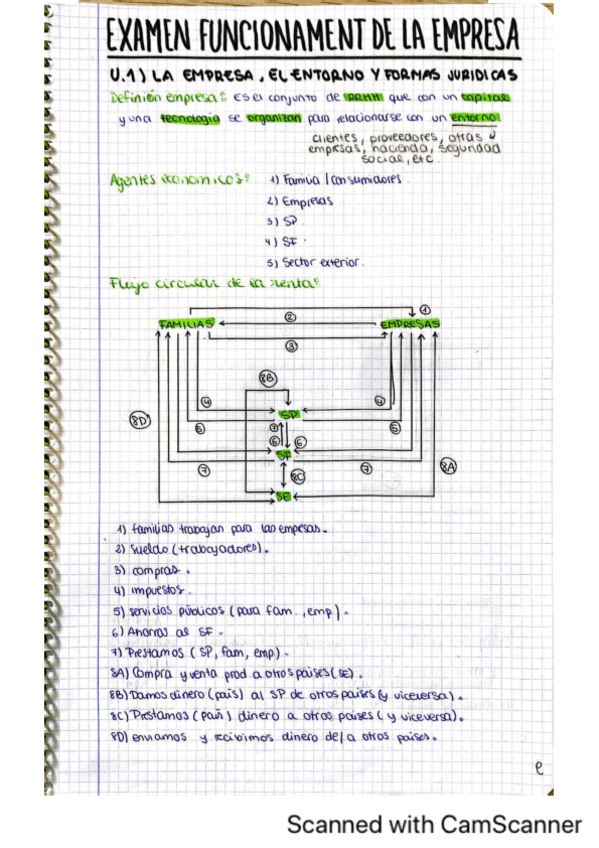 EXAMEN FUNCIONAMENT DE LA EMPRESA
U.1) LA EMPRESA, EL ENTORNO Y FORMAS JURIDICAS
Definión empresa: Es el conjunto de RRHH que con un capital
y una tecnología se organizan para relacionarse con un entorno.
clientes, proveedores, otras
empresas, hacienda, seguridad
social, etc
Agentes economicos: 1) Familia / consumidores.
2) Empresas
3) SP
4) SF.
5) Sector exterior.
Flujo circular de la renta:
1
FAMILIAS 2 EMPRESAS
3
8B
4 4
8D SP
5 7 5
6 6
SF
7 8C 7 8A
SE
1) familias trabajan para las empesas.
2) Sueldo (trabajadores).
3) compras.
4) impuestos.
5) servicios públicos (para fam., emp).
6) Ahorros al SF.
7) Prestamos (SP, fam, emp).
8A) Compra y venta prod a otros paises (SE).
8B) Damos dinero (país) al SP de otros países (y viceversa).
8C) Prestamos (país) dinero a otros países (y viceversa).
8D) enviamos y recibimos dinero de/a otros países.
e
Scanned with CamScanner